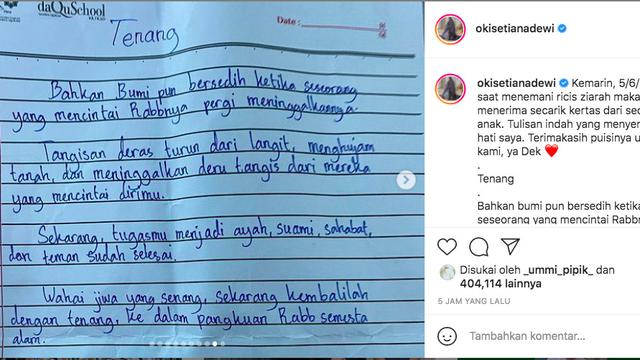 daQuSchool
Date :
Tenang
Bahkan Bumi pun bersedih ketika seseorang
yang mencintai Rabbnya pergi meninggalkannya.
Tangisan deras turun dari langit, menghujam
tanah, dan meninggalkan deru tangis dari mereka
yang mencintai dirimu.
Sekarang, tugasmu menjadi ayah, suami, sahabat,
dan teman sudah selesai.
Wahai jiwa yang senang, sekarang kembalilah
dengan tenang, ke dalam pangkuan Rabb semesta
alam.
okisetianadewi
okisetianadewi Kemarin, 5/6/
saat menemani ricis ziarah maka
menerima secarik kertas dari seo
anak. Tulisan indah yang menyen
hati saya. Terimakasih puisinya u
kami, ya Dek ❤️
.
Tenang
.
Bahkan bumi pun bersedih ketika
seseorang yang mencintai Rabbn
Disukai oleh _ummi_pipik_ dan
404,114 lainnya
5 JAM YANG LALU
Tambahkan komentar...